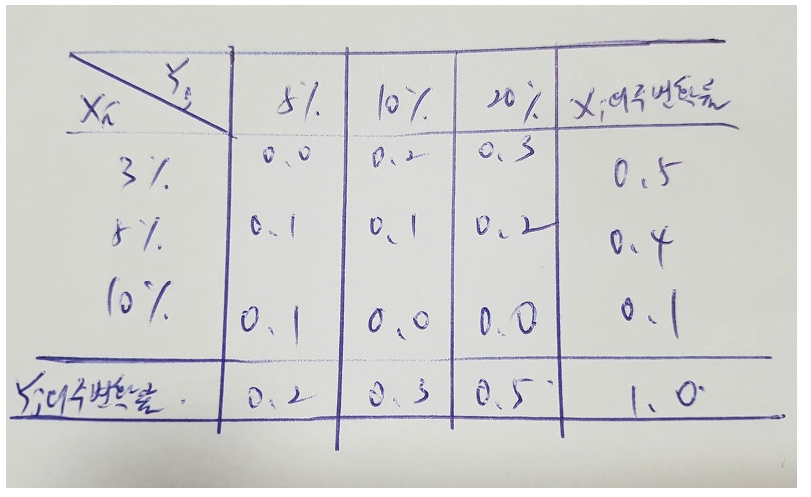 Yj
Xi 8% 10% 20% Xi의주변확률
3% 0.0 0.2 0.3 0.5
8% 0.1 0.1 0.2 0.4
10% 0.1 0.0 0.0 0.1
Yj의주변확률 0.2 0.3 0.5 1.0